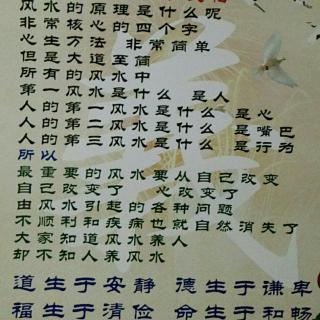 风水的原理是什么呢
非常核心的四个字
心生万法 非常简单
但是大道至简
所有的风水中
第一风水是什么 是人
人的第一风水是什么 是心
人的第二风水是什么 是嘴巴
人的第三风水是什么 是行为
所以
最重要的风水要从自己改变
自己改变了 心改变了
由风水引起的各种问题
不顺利和疾病也就自然消失了
大家不知道人养人
却不知人养风水
道生于安静 德生于谦卑
福生于清俭 命生于和畅